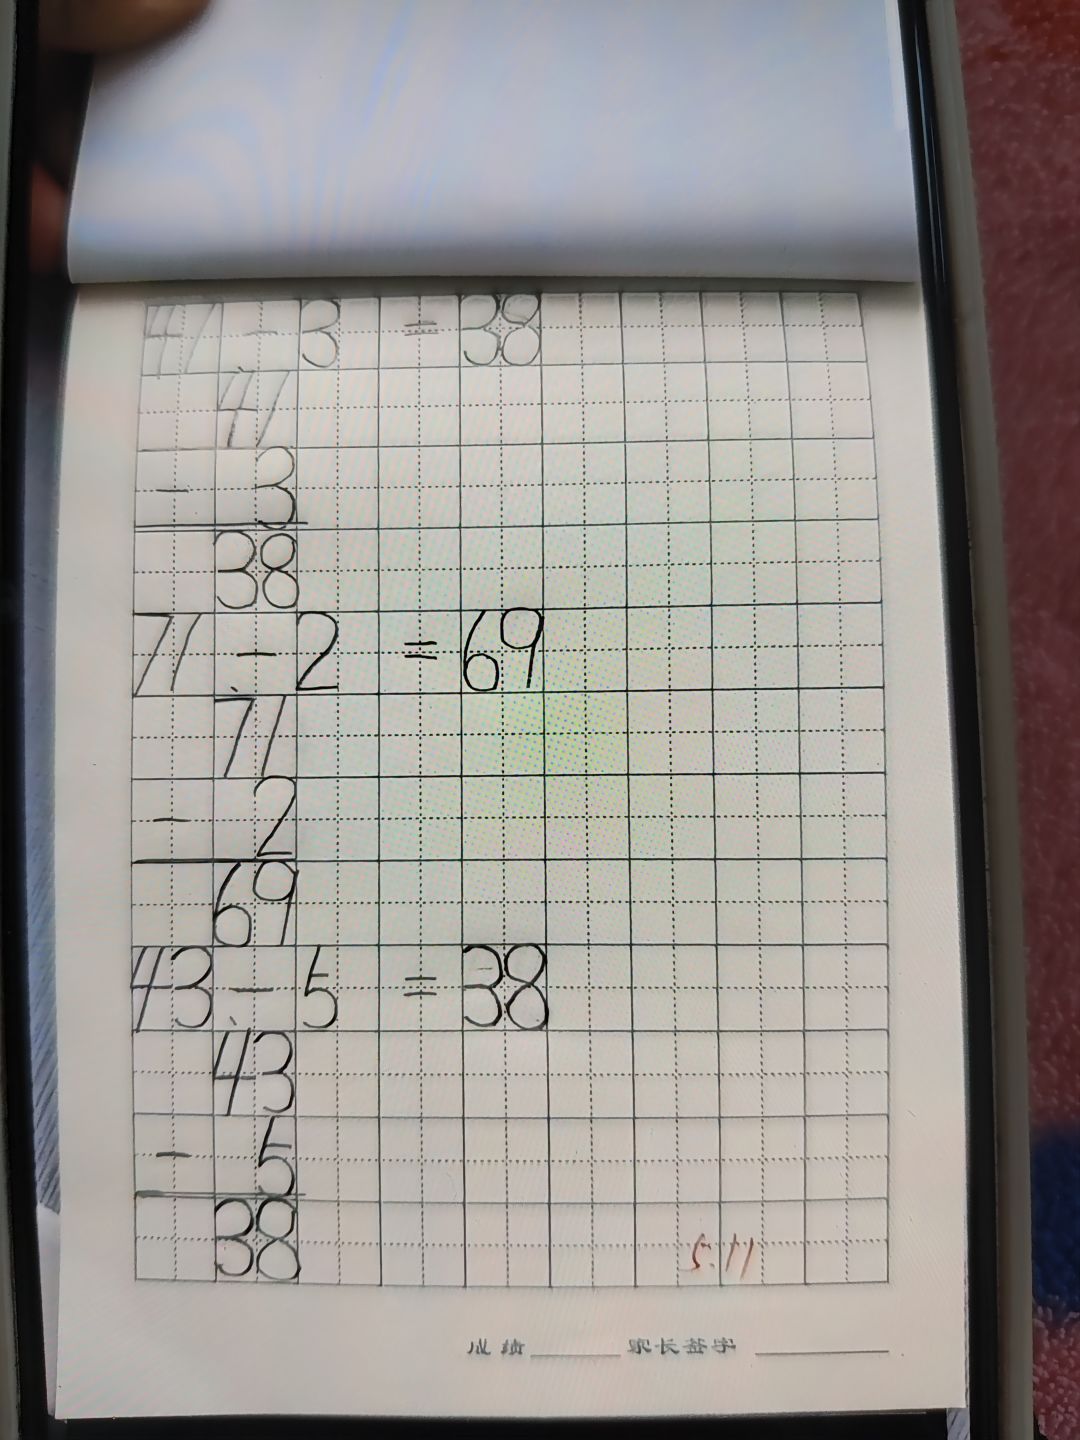 41 - 3 = 38
41
- 3
38
71 - 2 = 69
71
- 2
69
43 - 5 = 38
43
- 5
38
5.11
成绩 家长签字